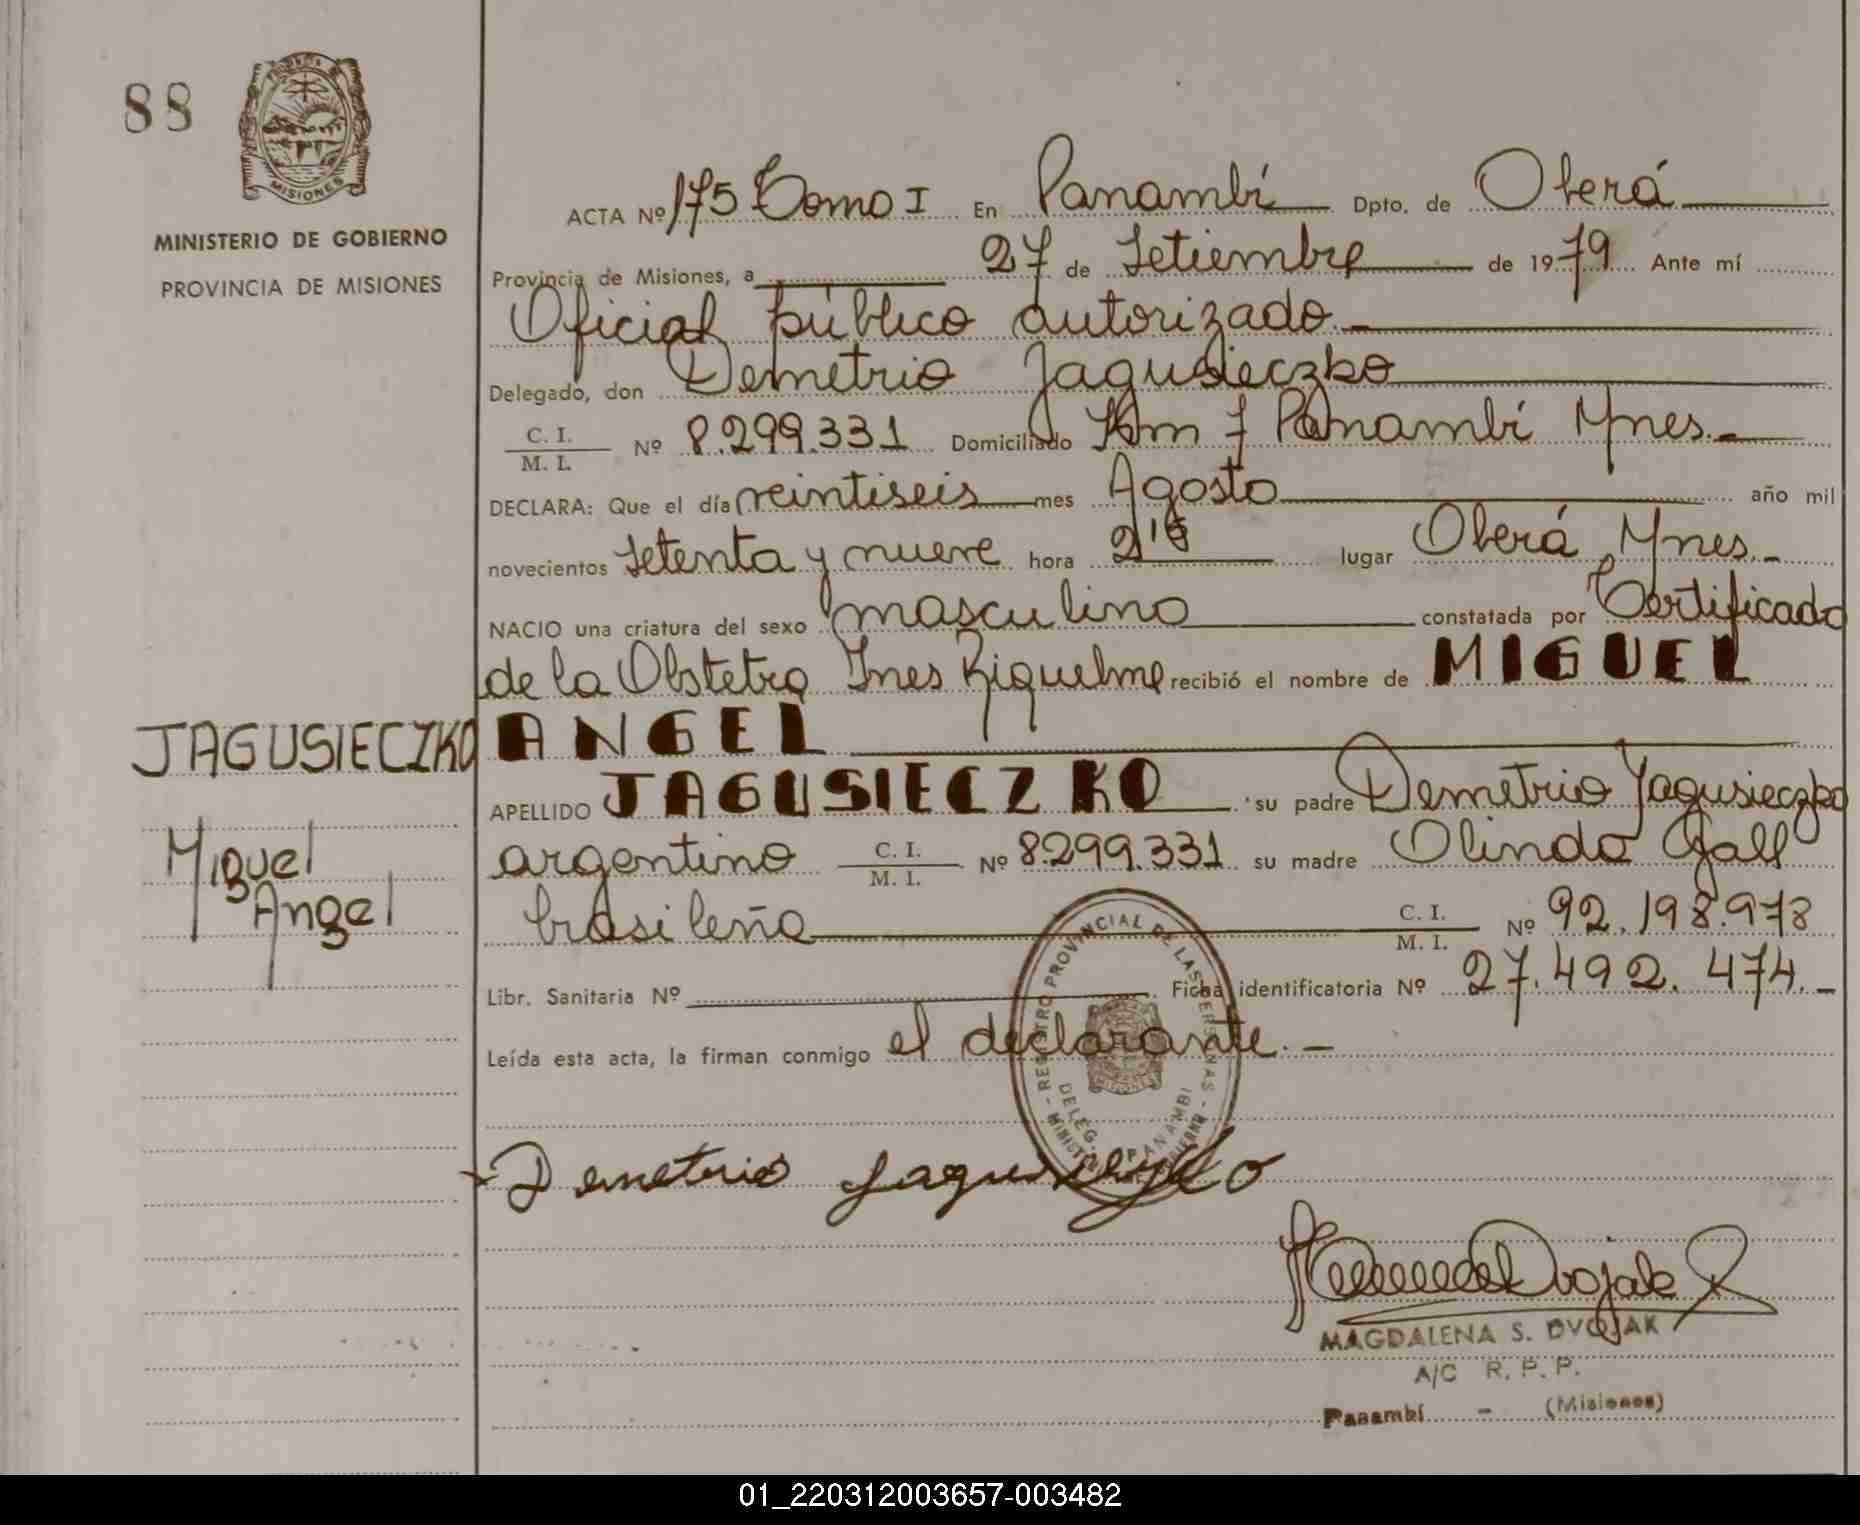 88
MISIONES
MINISTERIO DE GOBIERNO
PROVINCIA DE MISIONES
ACTA Nº 175 Tomo I En Panambí Dpto. de Oberá
Provincia de Misiones, a 27 de Setiembre de 1979 Ante mí
Oficial público autorizado.-
Delegado, don Demetrio Jagusieczko
C. I.
M. I. Nº 8.299.331 Domiciliado Km 7 Panambí Mnes.-
DECLARA: Que el día veintiseis mes Agosto año mil
novecientos Setenta y nueve hora 2 15 lugar Oberá Mnes.-
NACIO una criatura del sexo masculino constatada por Certificado
de la Obstetra Ines Riquelme recibió el nombre de MIGUEL
JAGUSIECZKO ANGEL
APELLIDO JAGUSIECZKO su padre Demetrio Jagusieczko
Miguel
Angel
argentino C. I.
M. I. Nº 8.299.331 su madre Olinda Gall
brasileña C. I.
M. I. Nº 92.198.978
Libr. Sanitaria Nº Ficha identificatoria Nº 27.492.474.-
Leída esta acta, la firman conmigo el declarante.-
REGISTRO PROVINCIAL DE LAS PERSONAS - MINISTERIO DE GOBIERNO -
DELEG. PANAMBI
Demetrio Jagusieczko
MAGDALENA S. DVOJAK
A/C R. P. P.
Panambí - (Misiones)
01_220312003657-003482